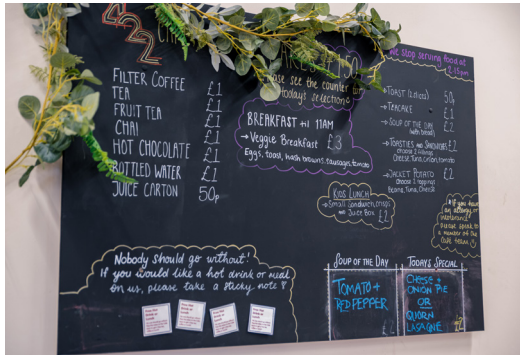 222
FILTER COFFEE £1
TEA £1
FRUIT TEA £1
CHAI £1
HOT CHOCOLATE £1
BOTTLED WATER £1
JUICE CARTON 50p
Nobody should go without!
If you would like a hot drink or meal
on us, please take a sticky note
£1.50
Please see the counter for
todays selection
BREAKFAST till 11AM
→ Veggie Breakfast £3
Eggs, toast, hash browns, sausages, tomato
KIDS LUNCH
→ Small Sandwich, crisps
and Juice Box £2
We stop serving food at
2:15pm
→ TOAST (2 slices) 50p
→ TEACAKE £1
→ SOUP OF THE DAY £2
(with bread)
→ TOASTIES and SANDWICHES £2
choose 2 fillings
Cheese, Tuna, onion, tomato
→ JACKET POTATO £2
choose 2 toppings
Beans, Tuna, Cheese
If you have
an allergy or
intolerance
please speak to
a member of the
café team
SOUP OF THE DAY
TOMATO +
RED PEPPER
£2
TODAYS SPECIAL
CHEESE +
ONION PIE
OR
QUORN
LASAGNE £2